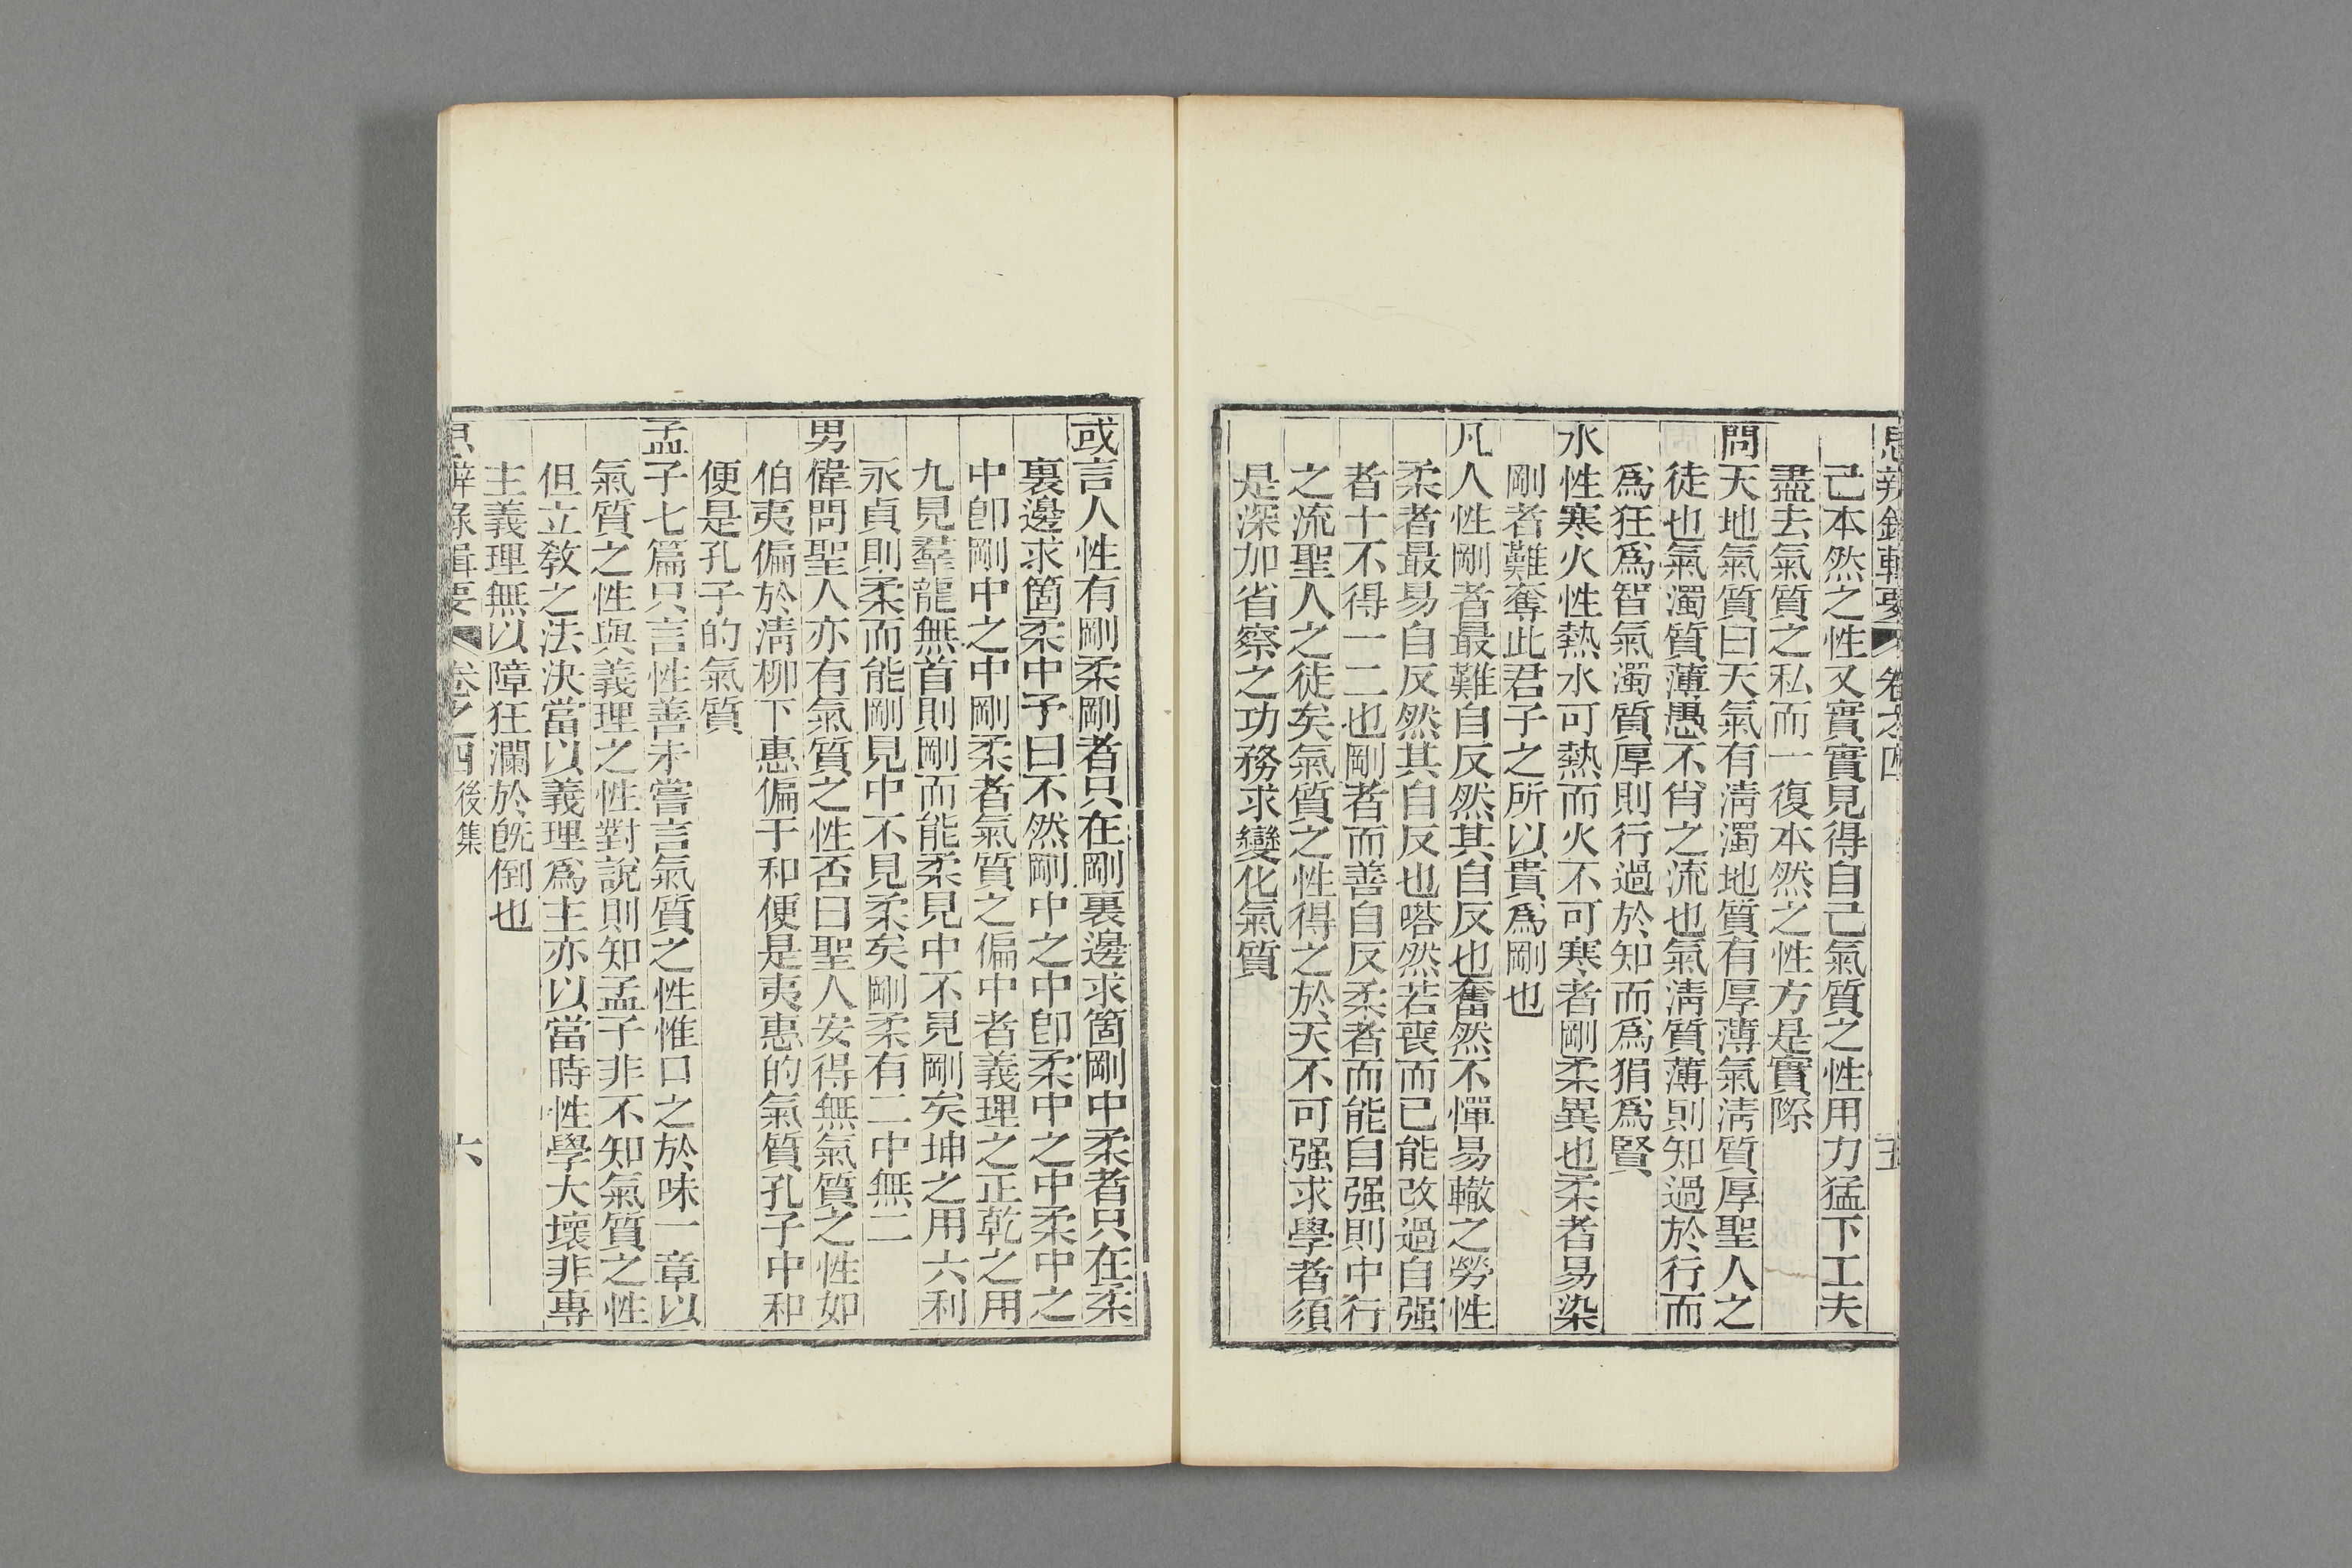 思辨錄輯要 卷之四 五
己本然之性又實實見得自己氣質之性用力猛下工夫
盡去氣質之私而一復本然之性方是實際
問天地氣質曰天氣有淸濁地質有厚薄氣淸質厚聖人之
徒也氣濁質薄愚不肖之流也氣淸質薄則知過於行而
爲狂爲智氣濁質厚則行過於知而爲狷爲賢
水性寒火性熱水可熱而火不可寒者剛柔異也柔者易染
剛者難奪此君子之所以貴爲剛也
凡人性剛者最難自反然其自反也奮然不憚易轍之勞性
柔者最易自反然其自反也嗒然若喪而已能改過自强
者十不得一二也剛者而善自反柔者而能自强則中行
之流聖人之徒矣氣質之性得之於天不可强求學者須
是深加省察之功務求變化氣質
或言人性有剛柔剛者只在剛裏邊求箇剛中柔者只在柔
裏邊求箇柔中予曰不然剛中之中卽柔中之中柔中之
中卽剛中之中剛柔者氣質之偏中者義理之正乾之用
九見羣龍無首則剛而能柔見中不見剛矣坤之用六利
永貞則柔而能剛見中不見柔矣剛柔有二中無二
男偉問聖人亦有氣質之性否曰聖人安得無氣質之性如
伯夷偏於淸柳下惠偏于和便是夷惠的氣質孔子中和
便是孔子的氣質
孟子七篇只言性善未嘗言氣質之性惟口之於味一章以
氣質之性與義理之性對說則知孟子非不知氣質之性
但立敎之法決當以義理爲主亦以當時性學大壞非專
主義理無以障狂瀾於旣倒也
思辨錄輯要 卷之四 後集 六